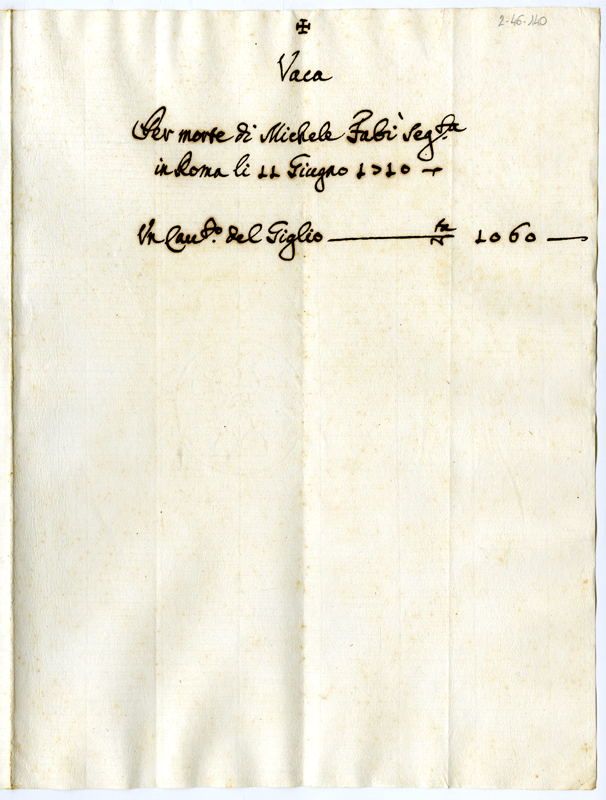 2-46-140
✠
Vaca
Per morte di Michele Fabi seg.ta
in Roma li 11 Giugno 1710
Un Cau.to del Giglio 1060